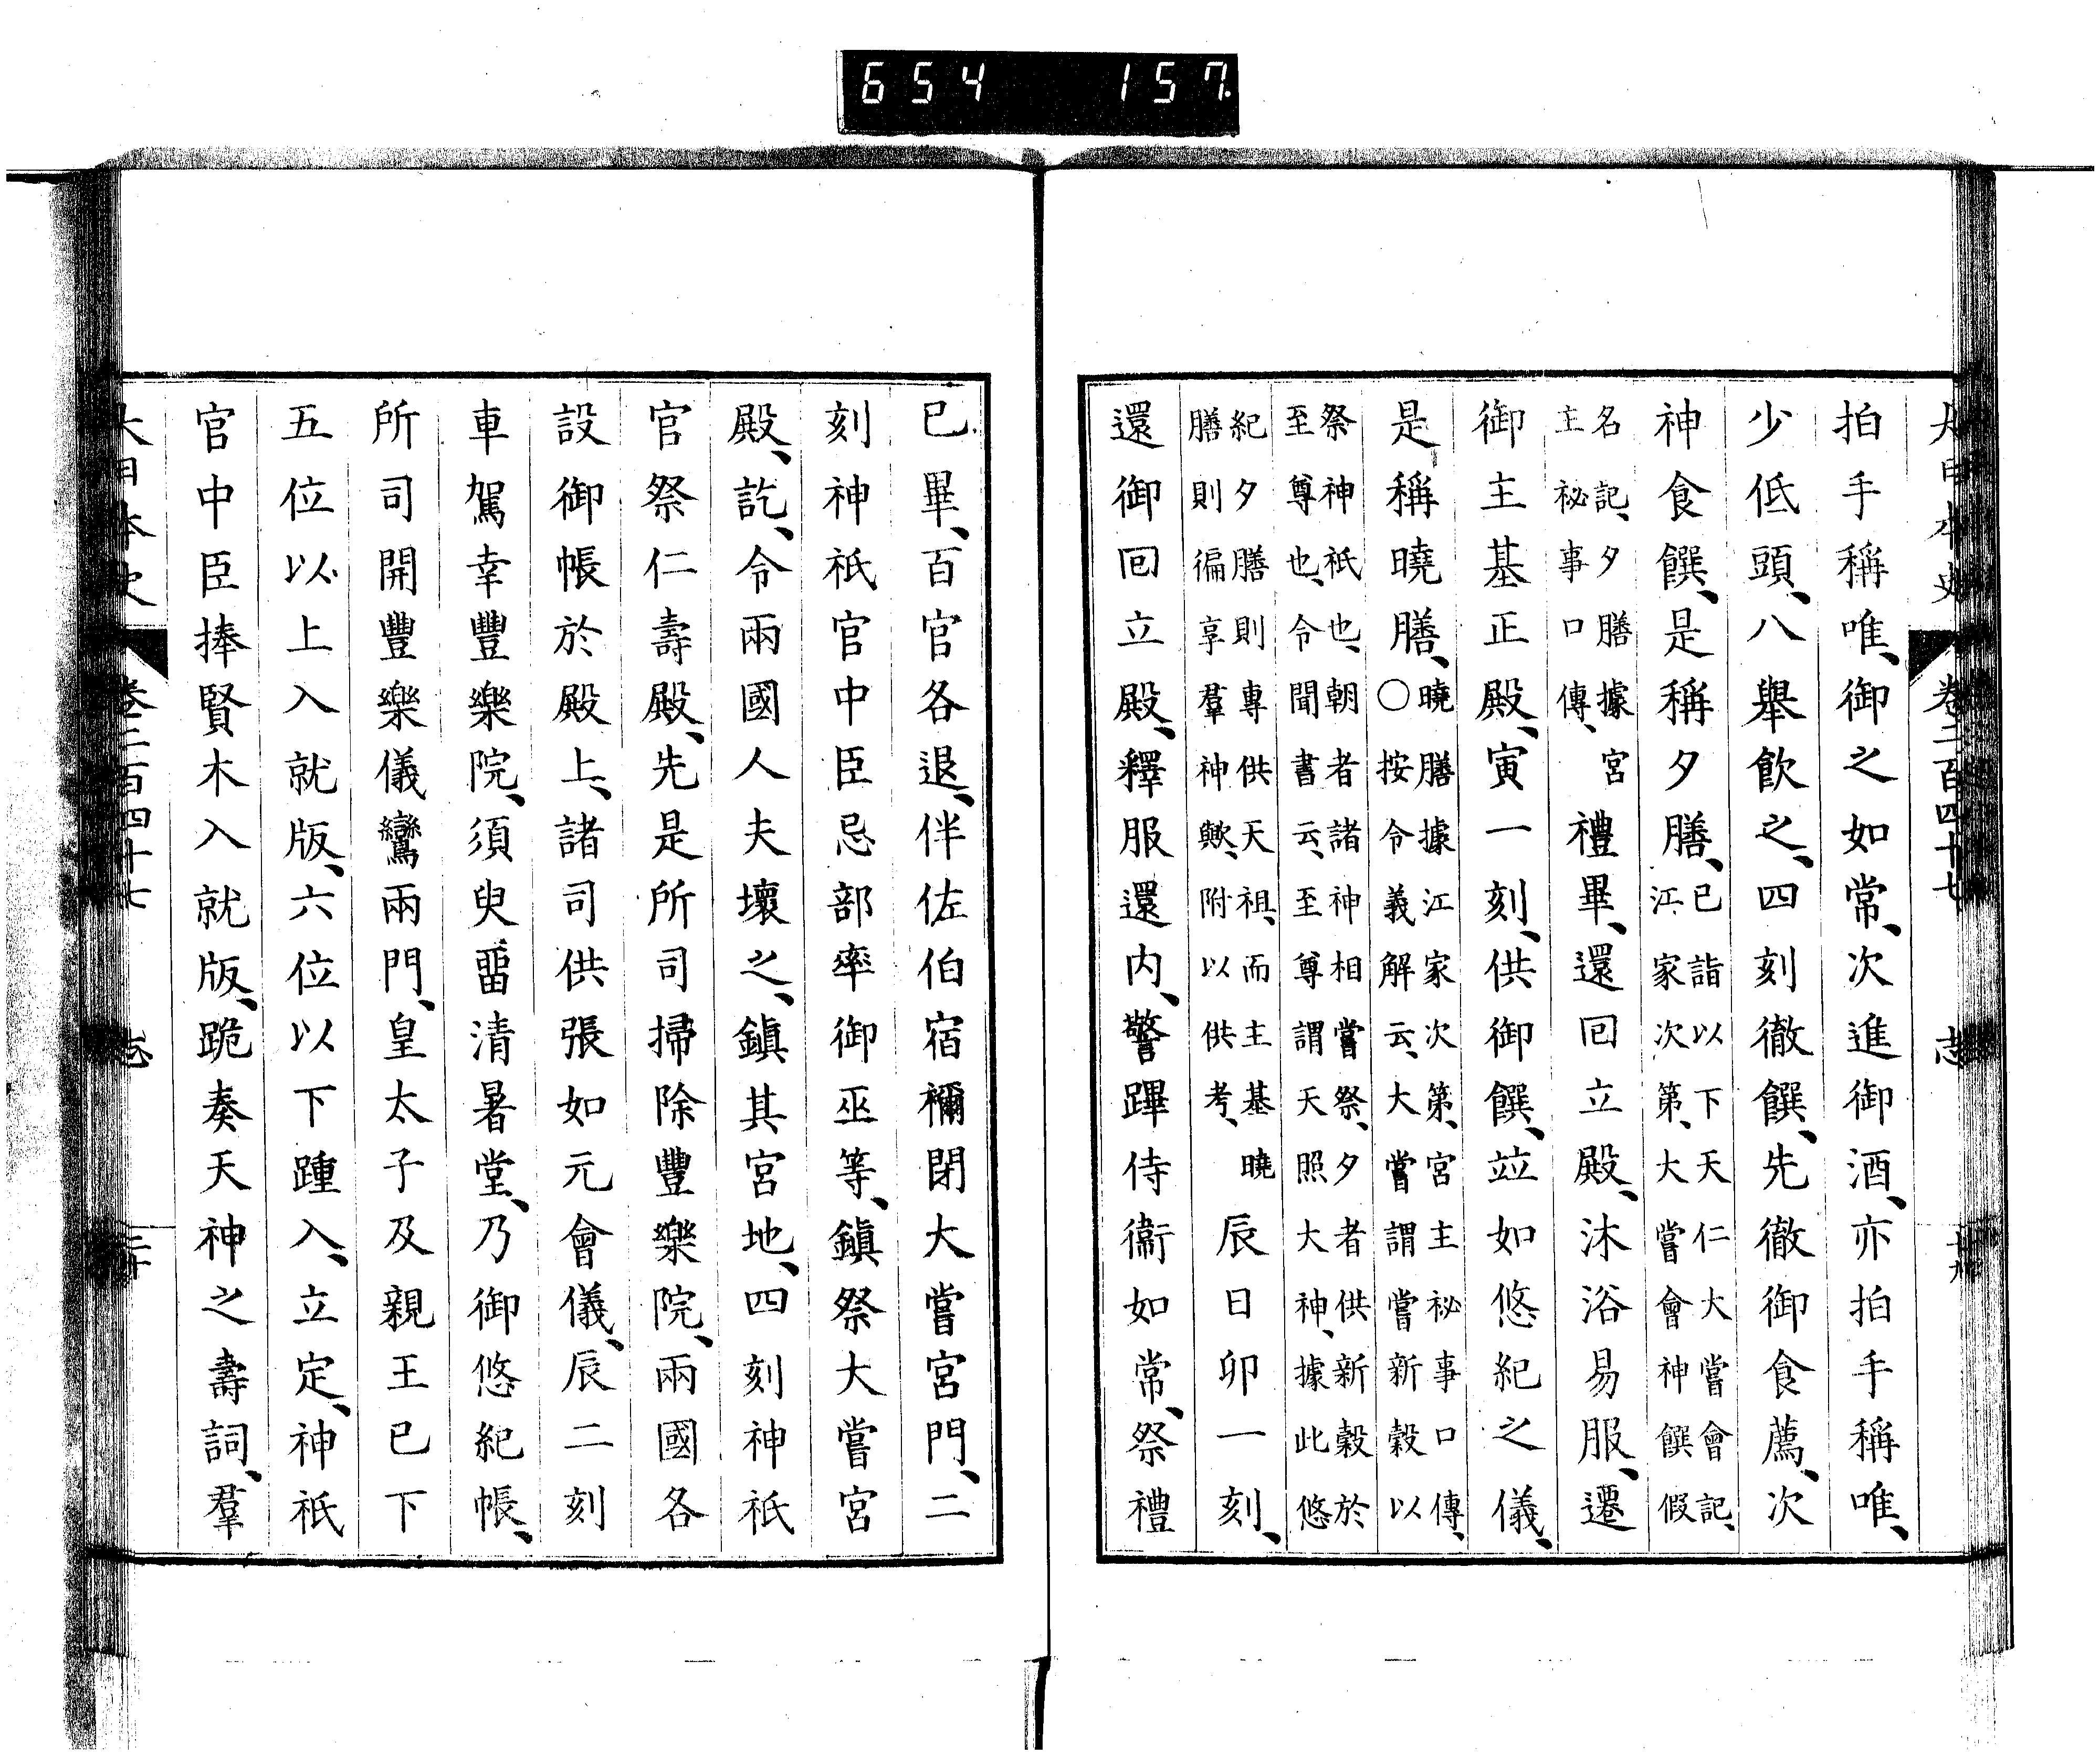 654 157
大日本史 卷二百四十七 志 十九
拍手稱唯、御之如常、次進御酒、亦拍手稱唯、
少低頭、八舉飲之、四刻徹饌、先徹御食薦、次
神食饌、是稱夕膳、已詣以下天仁大嘗會記、
江家次第、大嘗會神饌假
名記、夕膳據宮
主祕事口傳、禮畢、還回立殿、沐浴易服、遷
御主基正殿、寅一刻、供御饌、竝如悠紀之儀、
是稱曉膳、曉膳據江家次第、宮主祕事口傳、
○按令義解云、大嘗謂嘗新穀以
祭神祇也、朝者諸神相嘗祭、夕者供新穀於
至尊也、令聞書云、至尊謂天照大神、據此悠
紀夕膳則專供天祖、而主基曉
膳則徧享羣神歟、附以供考、辰日卯一刻、
還御回立殿、釋服還内、警蹕侍衞如常、祭禮
已畢、百官各退、伴佐伯宿禰閉大嘗宮門、二
刻神祇官中臣忌部率御巫等、鎭祭大嘗宮
殿、訖、令兩國人夫壞之、鎭其宮地、四刻神祇
官祭仁壽殿、先是所司掃除豐樂院、兩國各
設御帳於殿上、諸司供張如元會儀、辰二刻
車駕幸豐樂院、須臾畱清暑堂、乃御悠紀帳、
所司開豐樂儀鸞兩門、皇太子及親王已下
五位以上入就版、六位以下踵入、立定、神祇
官中臣捧賢木入就版、跪奏天神之壽詞、羣
大日本史 卷二百四十七 志 二十